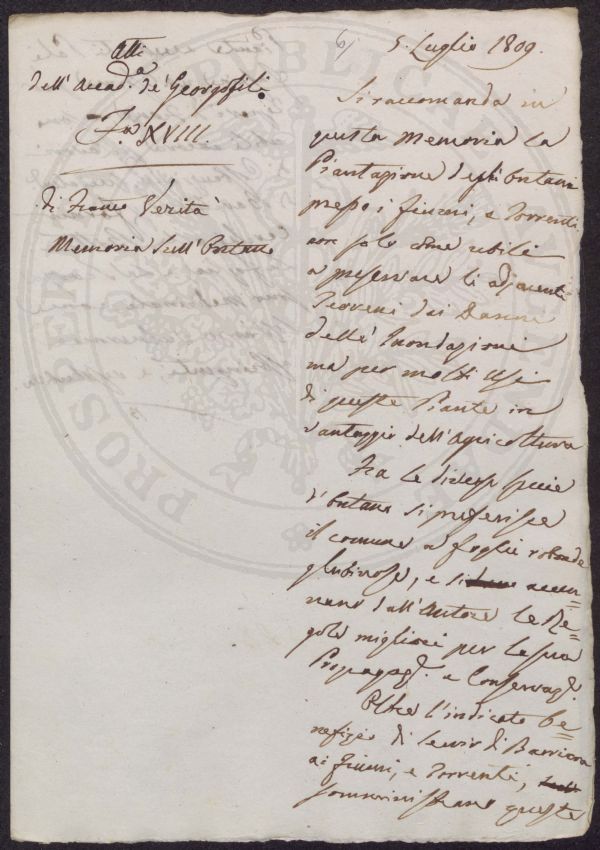 Atti
dell'Accad.a de' Georgofili
XVIII.
di Franco Verità
Memoria sull'Ontano
5. Luglio 1809.
Si raccomanda in
questa Memoria la
Piantagione degli Ontani
presso i fiumi, e Torrenti
non solo come utili
a preservare li adjacenti
Terreni dai Danni
delle Inondazioni
ma per molti Usi
di queste Piante in
vantaggio dell'Agricoltura
Fra le diverse specie
d'Ontano si preferisce
il comune a foglie rotonde
glutinose, e si accen=
nano dall'Autore le Re=
gole migliori per la sua
Propagaz.e e Conservaz.e
Oltre l'indicato be=
nefizio di servir di Barriera
ai fiumi, e Torrenti,
somministrano queste
PROSPERITAS PUBLICA